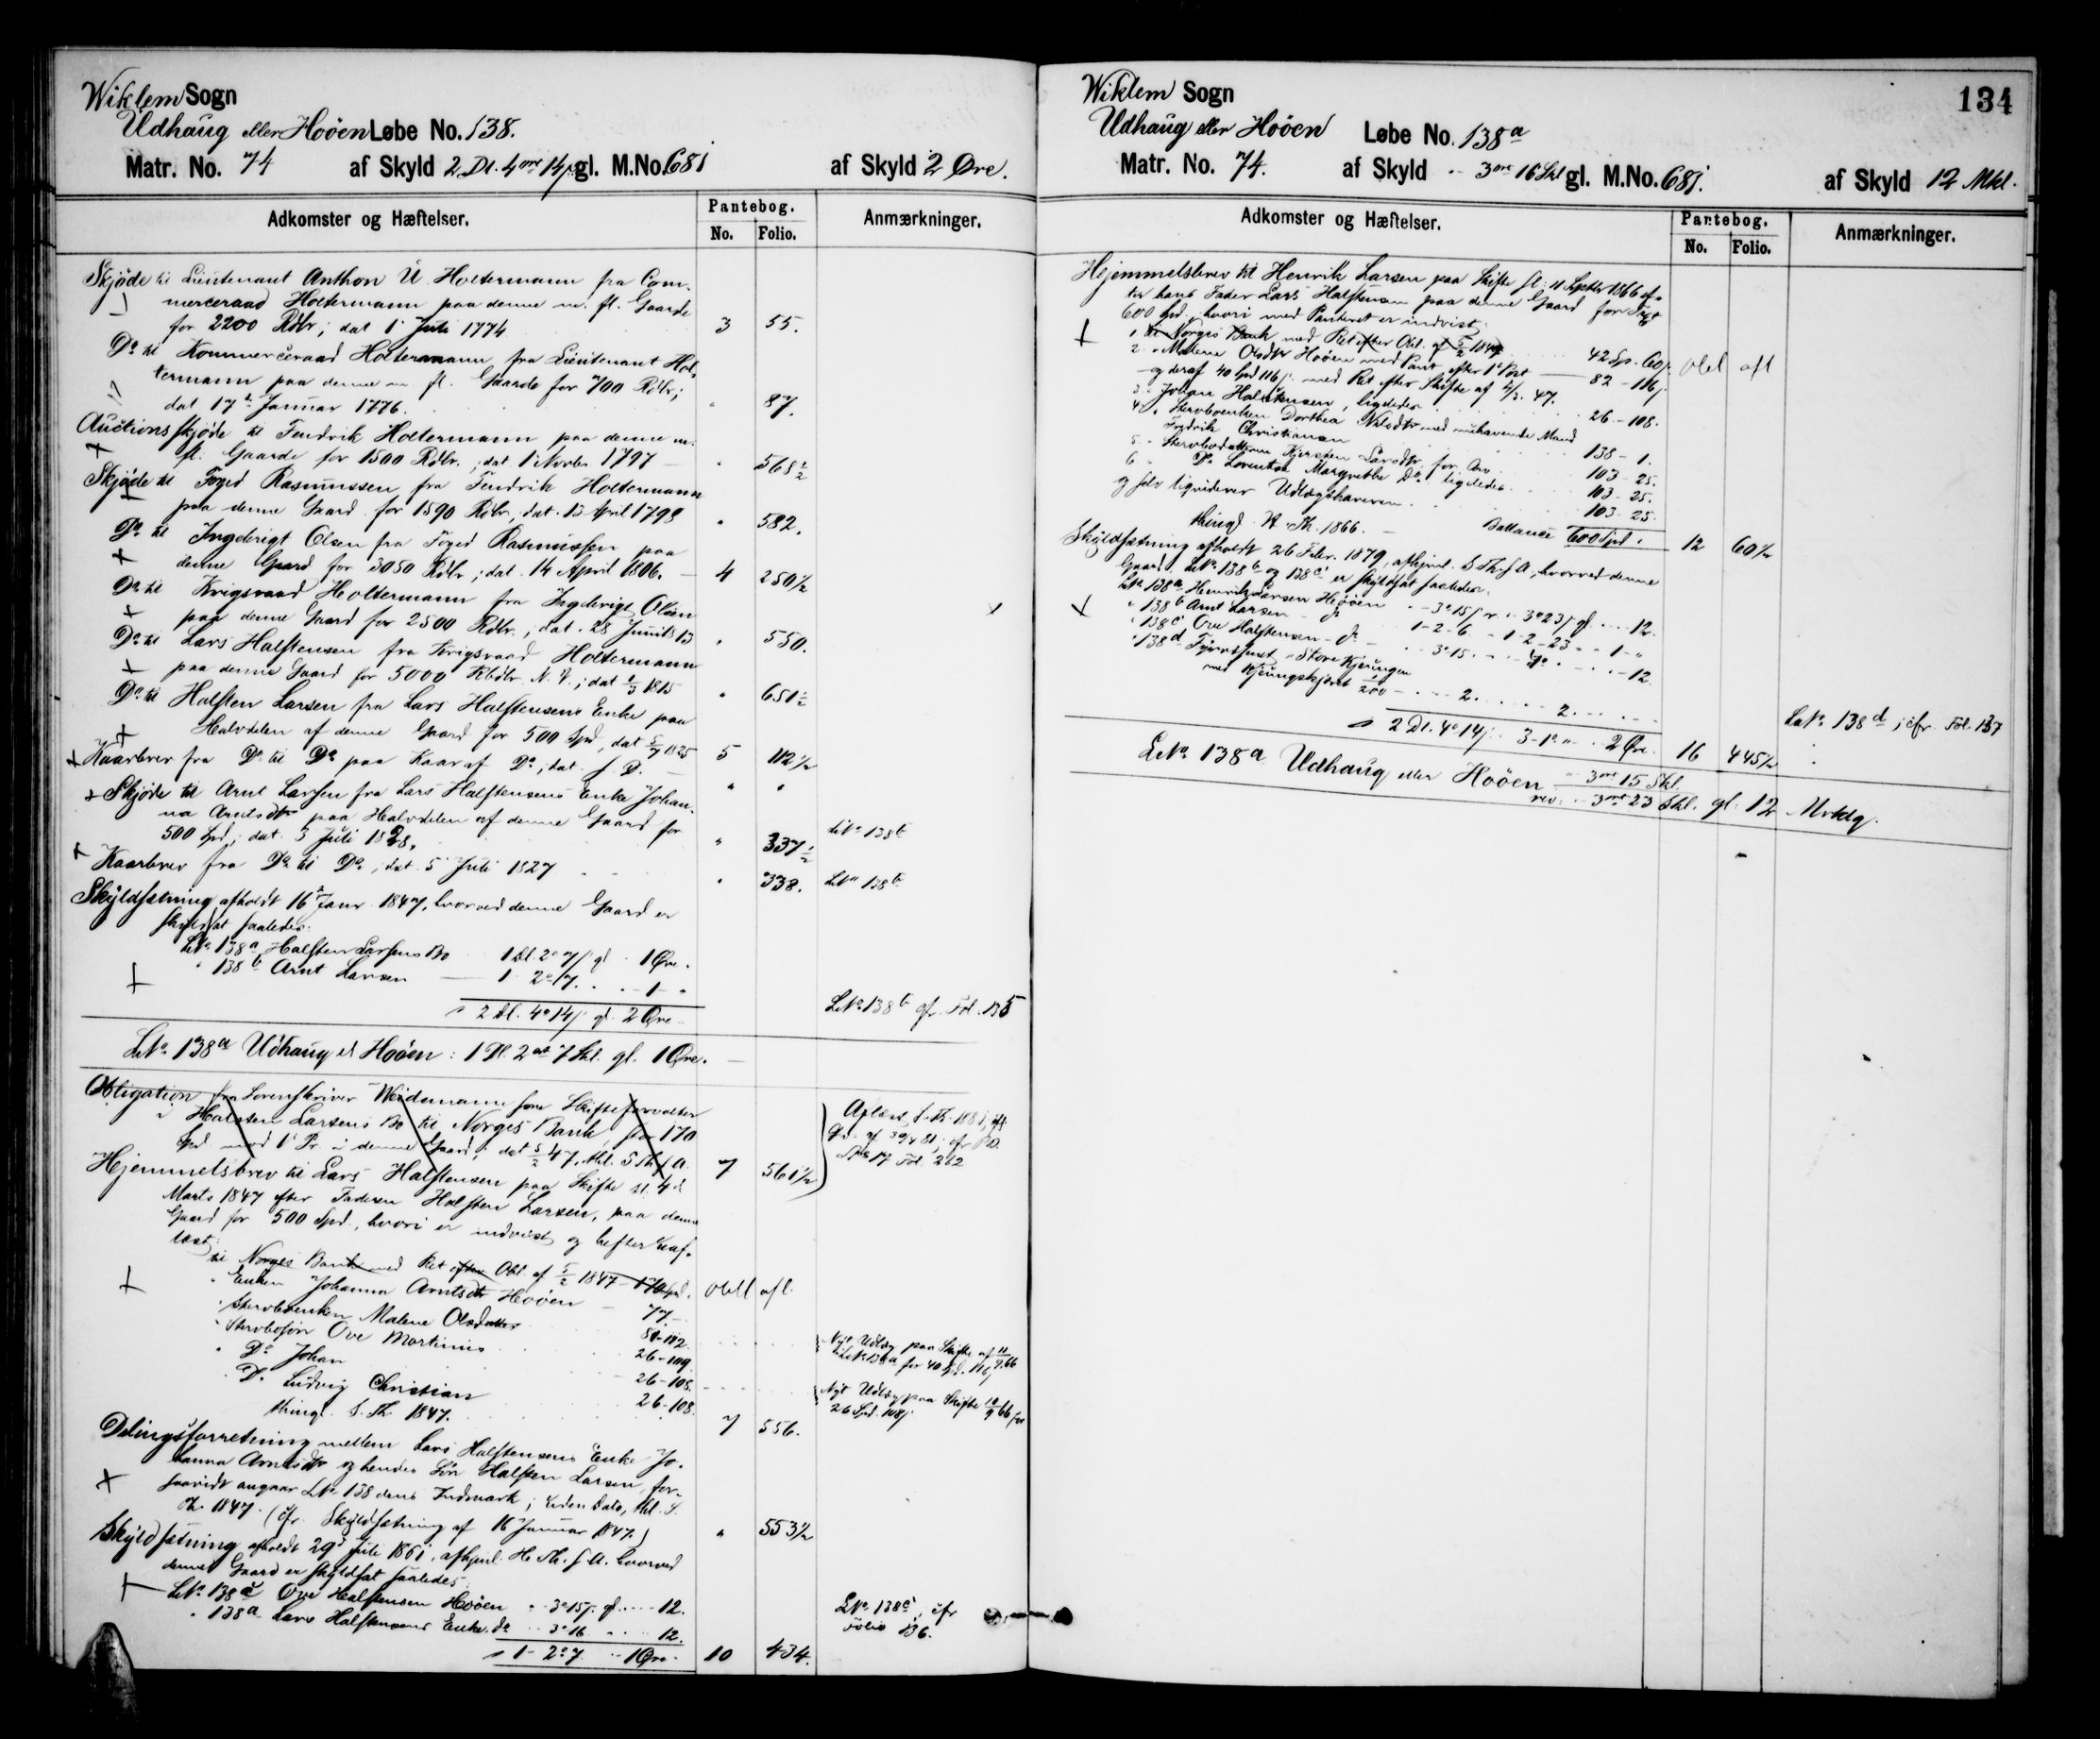 Wiklem Sogn
Udhaug eller Hoöen Løbe No. 138.
Matr. No. 74 af Skyld 2 Dl. 4 ort 14 ſ gl. M.No. 68i af Skyld 2 Øre.
Adkomster og Hæftelser.
Pantebog.
No. Folio.
Anmærkninger.
Skjøde til Lieutenant Anthon U. Holtermann fra Com-
merceraad Holtermann paa denne m. fl. Gaarde
for 2200 Rdlr; dat 1 Juli 1774 3 55.
Do til Kommerceraad Holtermann fra Lieutenant Hol-
termann paa denne m fl. Gaarde for 700 Rdlr;
dat 17de Januar 1776. " 87.
Auctionsskjøde til Fendrik Holtermann paa denne m.
fl. Gaarde for 1500 Rdlr.; dat 1 Novbr 1797 " 568 1/2
Skjøde til Foged Rasmussen fra Fendrik Holtermann
paa denne Gaard for 1590 Rdlr, dat. 13 April 1798 " 582.
Do til Ingebrigt Olsen fra Foged Rasmussen paa
denne Gaard for 3050 Rdlr; dat. 14 April 1806. 4 250 1/2
Do til Krigsraad Holtermann fra Ingebrigt Olsen
paa denne Gaard for 2500 Rdlr., dat. 28 Juni 1813 " 550.
Do til Lars Halstensen fra Krigsraad Holtermann
paa denne Gaard for 5000 Rbdlr. N. V.; dat 1/3 1815 " 651 1/2
Do til Halsten Larsen fra Lars Halstensens Enke paa
Halvdelen af denne Gaard for 500 Spd, dat 5/7 1825 5 112 1/2
Kaarbrev fra Do til Do paa Kaar af Do; dat. s. D. " "
Skjøde til Arnt Larsen fra Lars Halstensens Enke Johan-
na Arntsdtr paa Halvdelen af denne Gaard for
500 Spd; dat. 5 Juli 1828. " 337 1/2 LNo 138b
Kaarbrev fra Do til Do, dat. 5 Juli 1827 " 338. LNo 138b
Skyldsætning afholdt 16de Janr 1847, hvorved denne Gaard er
skyldsat saaledes:
LNo 138a Halsten Larsens Bo 1 Dl. 2 o 7 ſ gl 1 Øre.
" 138b Arnt Larsen 1 2 o 7. 1 "
2 Dl. 4 o 14 ſ gl. 2 Øre
LNo 138b cfr. Fol. 135
LNo 138a Udhaug el Hoöen: 1 Dl. 2 ort 7 Skl. gl. 1 Øre.
Obligation fra Sorenskriver Weidemann som Skifteforvalter
i Halsten Larsens Bo til Norges Bank, for 170
Spd med 1 Pr i denne Gaard; dat 5/2 47, thl. S Th s A. 7 561 1/2
Aflæst S. Th. 1881, eft
Qv. af 30/4 81; cfr P.B.
No 17 Fol 262
Hjemmelsbrev til Lars Halstensen paa Skifte sl. 4de
Marts 1847 efter Faderen Halsten Larsen, paa denne
Gaard for 500 Spd., hvori er indvist og hefter uaf-
læst
til Norges Bank med Ret efter Obl. af 5/2 1847 170 Spd. Obl afl.
" Enken Johanna Arntsdtr Hoöen 77.
" Stervboenken Malene Olsdatter 80-112.
" Stervbosøn Ove Martinus 26-109.
" Do Johan 26-108.
" Do Ludvig Christian 26-108.
thingl. S. Th 1847. 7 556.
Nyt Udlæg paa Skifte af 11/9.66
i LNo 138a for 40 Spd. 116 ſ
Nyt Udlæg paa Skifte 11/9 66 for
26 Spd. 108 ſ
Delingsforretning mellem Lars Halstensens Enke Jo-
hanna Arntsdtr og hendes Søn Halsten Larsen, for-
saavidt angaar LNo 138 dens Indmark; uden Dato, thl. S.
Th. 1847. (cfr. Skyldsætning af 16 Januar 1847.) " 553 1/2
Skyldsætning afholdt 29de Juli 1861, afhjml. H. Th. s. A. hvorved
denne Gaard er skyldsat saaledes:
LNo 138c Ove Halstensen Hoöen " 3 o 15 ſ. gl. 12.
" 138a Lars Halstensens Enke. do " 3 o 16 12.
1 2 o 7 1 Øre 10 434.
LNo 138c, cfr
Folio 136.
134
Wiklem Sogn
Udhaug eller Hoöen Løbe No. 138a
Matr. No. 74. af Skyld " 3 ort 16 Skl gl. M.No. 68i. af Skyld 12 Mkl.
Adkomster og Hæftelser.
Pantebog.
No. Folio.
Anmærkninger.
Hjemmelsbrev til Henrik Larsen paa Skifte sl. 11 Septbr 1866 ef-
ter hans Fader Lars Halstensen paa denne Gaard for Taxt
600 Spd., hvori med Panteret er indvist:
1. til Norges Bank med Ret efter Obl. af 5/2 1847 42 Sp. 60 ſ. Obl afl
2. " Malene Olsdtr Hoöen med Pant efter 1 Post 82 - 116 ſ
og deraf 40 Spd 116 ſ. med Ret efter Skifte af 4/3. 47.
3. " Johan Halstensen, ligeledes 26 - 108.
4. " Stervboenken Dorthea Nilsdtr med nuhavende Mand
Fredrik Christiansen 138 - 1.
5. " Stervbodatteren Kjersten Larsdtr for Arv 103 - 25.
6. " Do Lorentse Margrethe Do ligeledes 103 - 25.
og selv liqviderer Udlægshaveren 103 25.
thingl. H. Th. 1866. Ballance 600 Spd. 12 60 1/2
Skyldsætning afholdt 26 Febr. 1879, afhjml. S. Th s A, hvorved denne
Gaard LNo 138b og 138c er skyldsat saaledes:
LNo 138a Henrik Larsen Hoöen " 3 o 15 ſ r " 3 o 23 ſ gl. 12.
" 138b Arnt Larsen do 1-2-6 " 1-2-23 " 1 "
" 138c Ove Halstensen do 3 o 15. 12.
" 138d Fyrvæsenet, Store Kjeungen
med Kjeungskjæret 1/200 2. 2.
2 Dl. 4 o 14 ſ. 3-1 o " 2 Øre. 16 445 1/2 LNo 138d; cfr. Fol. 137
LNo 138a Udhaug eller Hoöen " 3 ort 15 Skl.
rev: " 3 ort 23 Skl. gl. 12 Mrklg.